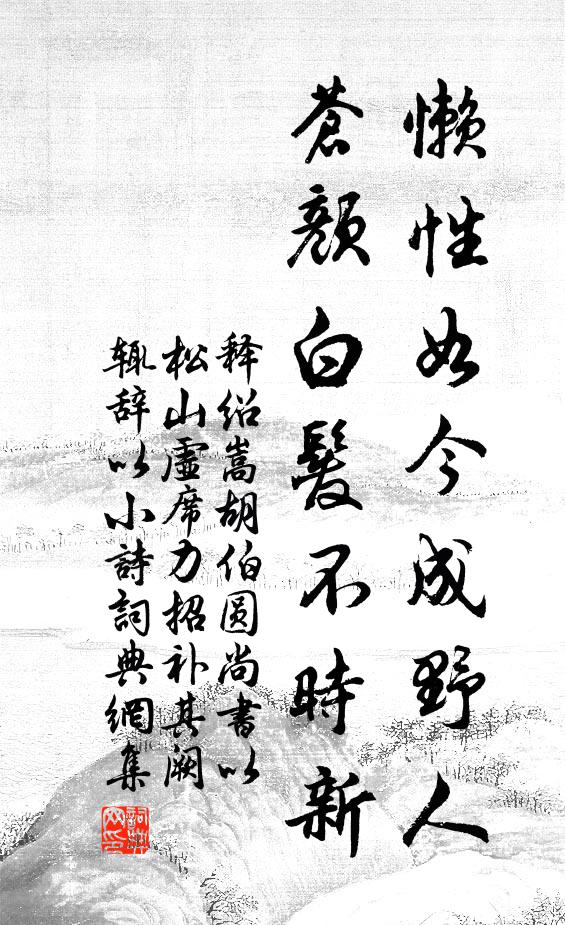 懒性如今成野人
蒼顏白髮不時新
释绍嵩胡伯圆尚書以
松山虛席力招补其阙
辄辞以小詩詞典網集